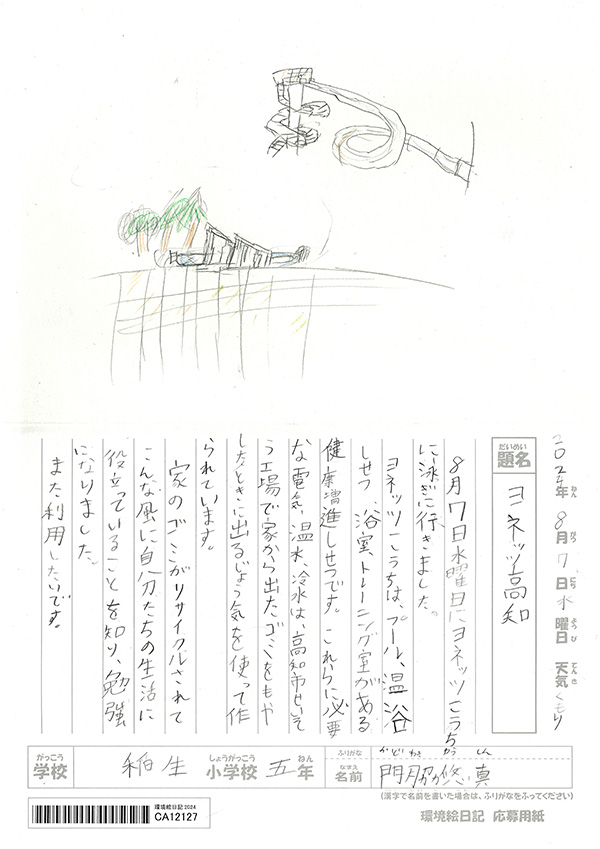 2024年 8月 7日 水曜日 天気 くもり
ねん がつ にち ようび てんき
だいめい
題名 ヨネッツ高知
8月7日水曜日にヨネッツこうち
に泳ぎに行きました。
ヨネッツこうちは、プール、温浴
しせつ、浴室、トレーニング室がある
健康増進しせつです。これらに必要
な電気、温水、冷水は、高知市せいそ
う工場で家から出たゴミをもや
したときに出るじょう気を使って作
られています。
家のゴミがリサイクルされて
こんな風に自分たちの生活に
役立っていることを知り、勉強
になりました。
また利用したいです。
がっこう しょうがっこう ねん
学校 稲生 小学校 五年
ふりがな かどわき
なまえ
名前 門脇 悠真
(漢字で名前を書いた場合は、ふりがなをふってください)
環境絵日記 2024
CA12127
環境絵日記 応募用紙